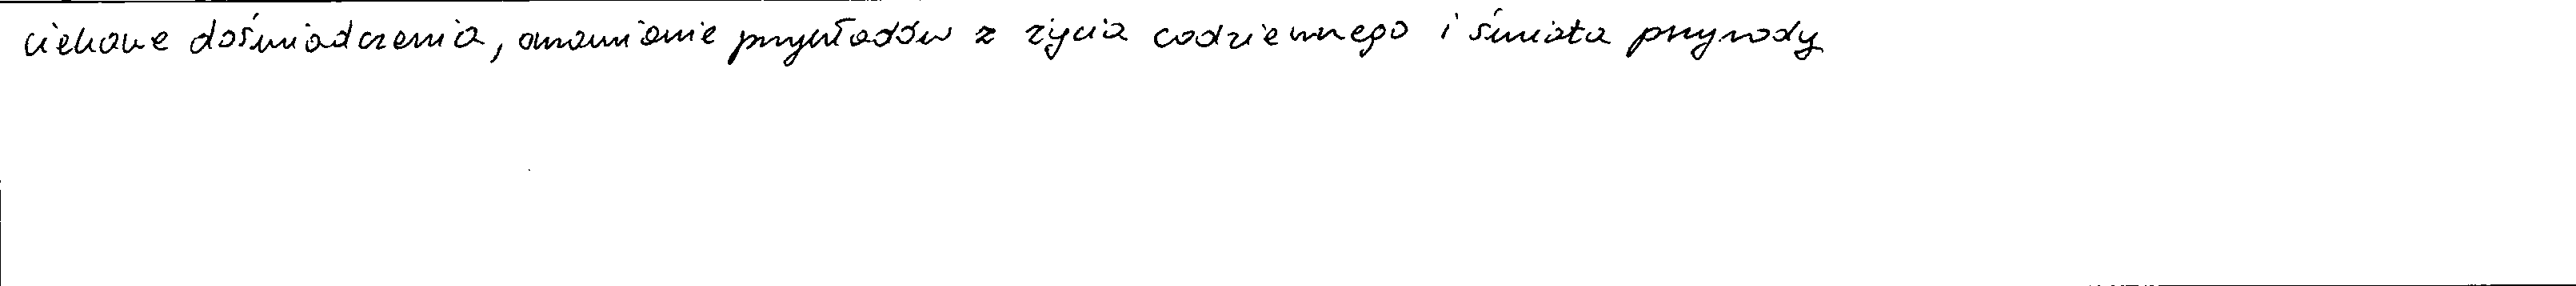 ciekawe doświadczenia, omawianie przykładów z życia codziennego i świata przyrody